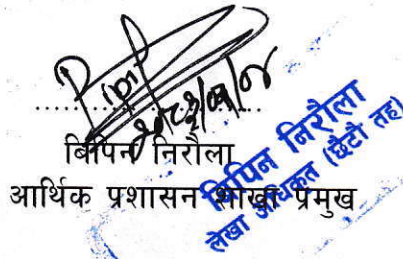 बिपिन निरौला
आर्थिक प्रशासन शाखा प्रमुख
बिपिन निरौला
लेखा अधिकृत (छैटौ तह)